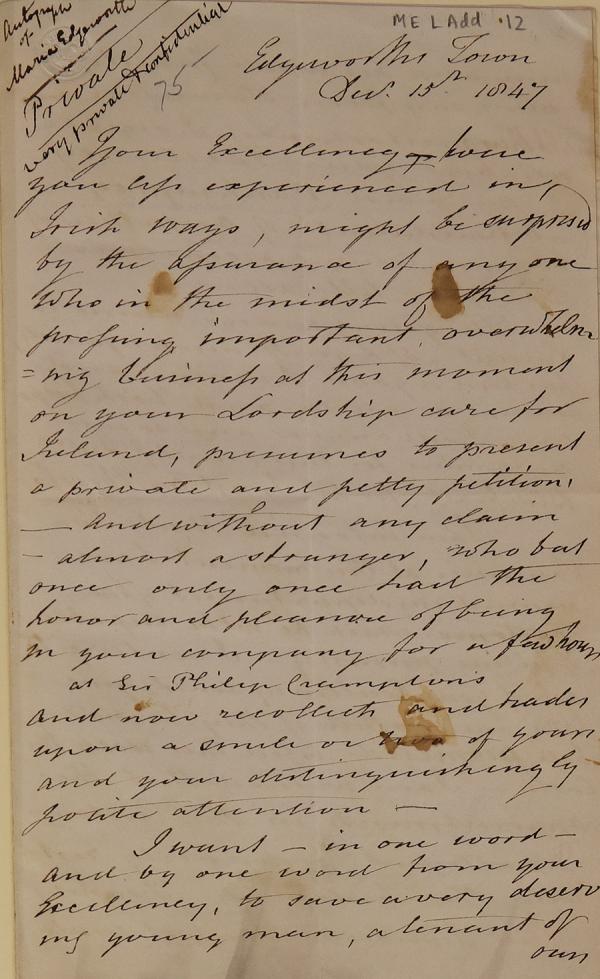 Autograph
of
Maria Edgeworth
ME L Add .12
Private
very private & confidential
75
Edgeworths Town
Decr. 15th 1847
Your Excellency, were
you less experienced in,
Irish ways, might be surprised
by the assurance of any one
who in the midst of the
pressing important, overwhelm
=ing business at this moment
on your Lordship care for
Ireland, presumes to present
a private and petty petition,
— and without any claim
– almost a stranger, who but
once only once had the
honor and pleasure of being
in your company for a few hours
at Sir Philip Crampton's
and now recollects and trades
upon a smile or two of yours
and your distinguishingly
polite attention —
I want – in one word –
and by one word from your
Excellency, to save a very deserv
ing young man, a tenant of
our